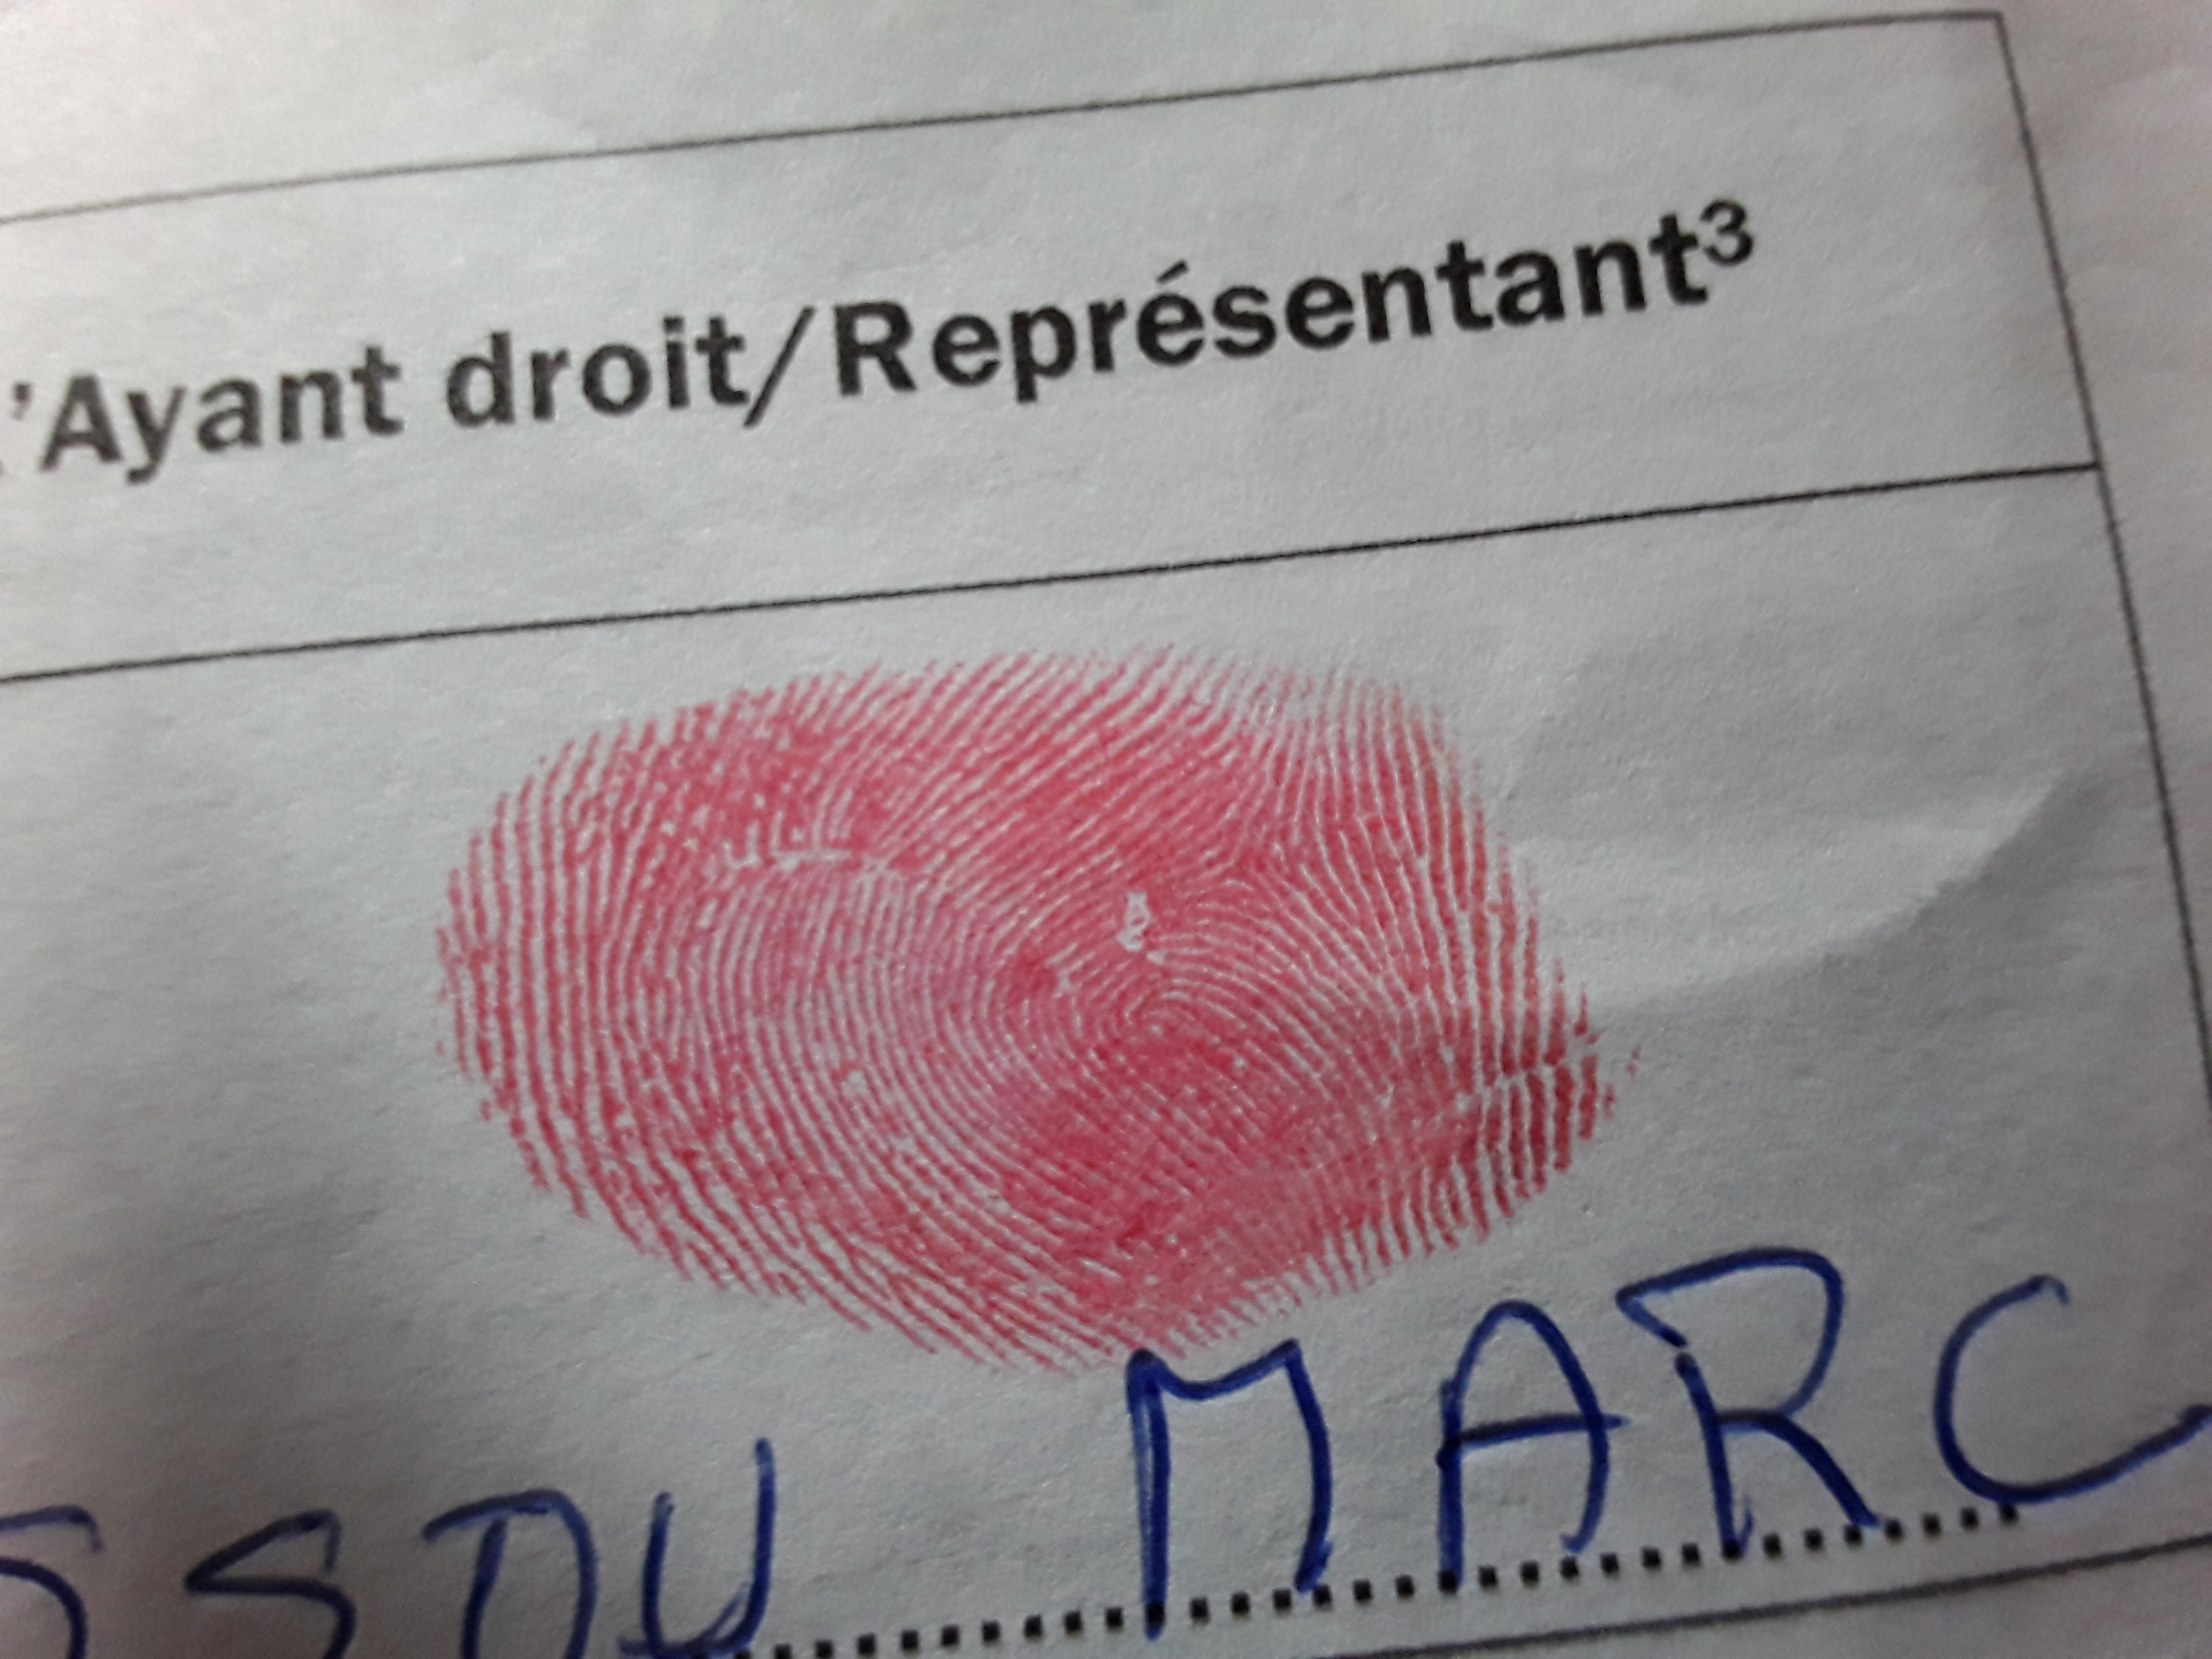 'Ayant droit/Représentant³
MARC